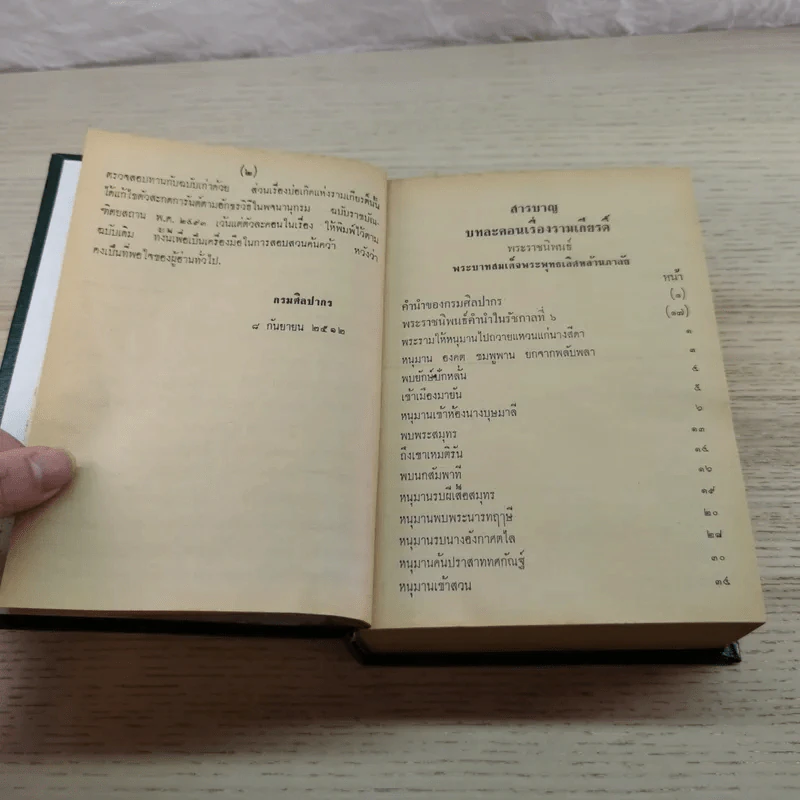 (๒)
ตรวจสอบทานกับฉบับเก่าด้วย ส่วนเรื่องบ่อเกิดแห่งรามเกียรติ์นั้น
ได้แก้ไขตัวสะกดการันต์ตามอักขรวิธีในพจนานุกรม ฉบับราชบัณ-
ฑิตยสถาน พ.ศ. ๒๔๙๓ เว้นแต่ตัวละคอนในเรื่อง ให้พิมพ์ไว้ตาม
ฉบับเดิม ทั้งนี้เพื่อเป็นเครื่องมือในการสอบสวนค้นคว้า หวังว่า
คงเป็นที่พอใจของผู้อ่านทั่วไป.
กรมศิลปากร
๘ กันยายน ๒๕๑๒
สารบาญ
บทละคอนเรื่องรามเกียรติ์
พระราชนิพนธ์
พระบาทสมเด็จพระพุทธเลิศหล้านภาลัย
หน้า
คำนำของกรมศิลปากร (๑)
พระราชนิพนธ์คำนำในรัชกาลที่ ๖ (๑๗)
พระรามให้หนุมานไปถวายแหวนแก่นางสีดา ๑
หนุมาน องคต ชมพูพาน ยกจากพลับพลา ๓
พบยักษ์ปักหลั่น ๔
เข้าเมืองมายัน ๕
หนุมานเข้าห้องนางบุษมาลี ๖
พบพระสมุทร ๑๓
ถึงเขาเหมติรัน ๑๔
พบนกสัมพาที ๑๖
หนุมานรบผีเสื้อสมุทร ๑๙
หนุมานพบพระนารทฤๅษี ๒๐
หนุมานรบนางอังกาศตไล ๒๘
หนุมานค้นปราสาททศกัณฐ์ ๓๐
หนุมานเข้าสวน ๓๔